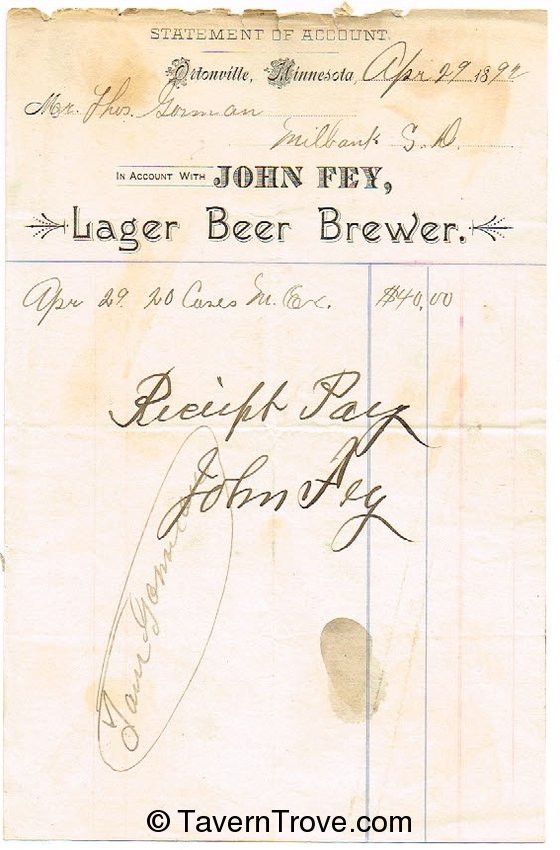 STATEMENT OF ACCOUNT.
Ortonville, Minnesota, Apr 29 1892
Mr. Thos. Gorman
Milbank S. D.
IN ACCOUNT WITH JOHN FEY,
Lager Beer Brewer.
Apr 29. 20 Cases M. Ex. $40.00
Receipt Pay
John Fey
© TavernTrove.com